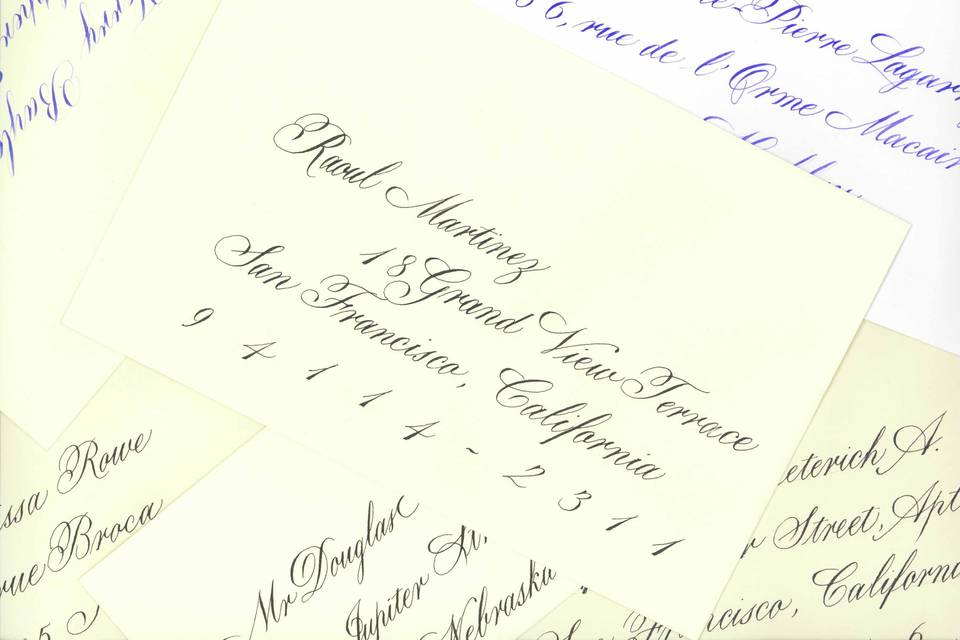 Raoul Martinez
18 Grand View Terrace
San Francisco, California
94114-2311
Pierre Lagar
56, rue de l'Orme Macair
Rowe
rue Broca
5
Mr Douglas
Jupiter
Nebraska
eterich A.
Street, Apt
cisco, California